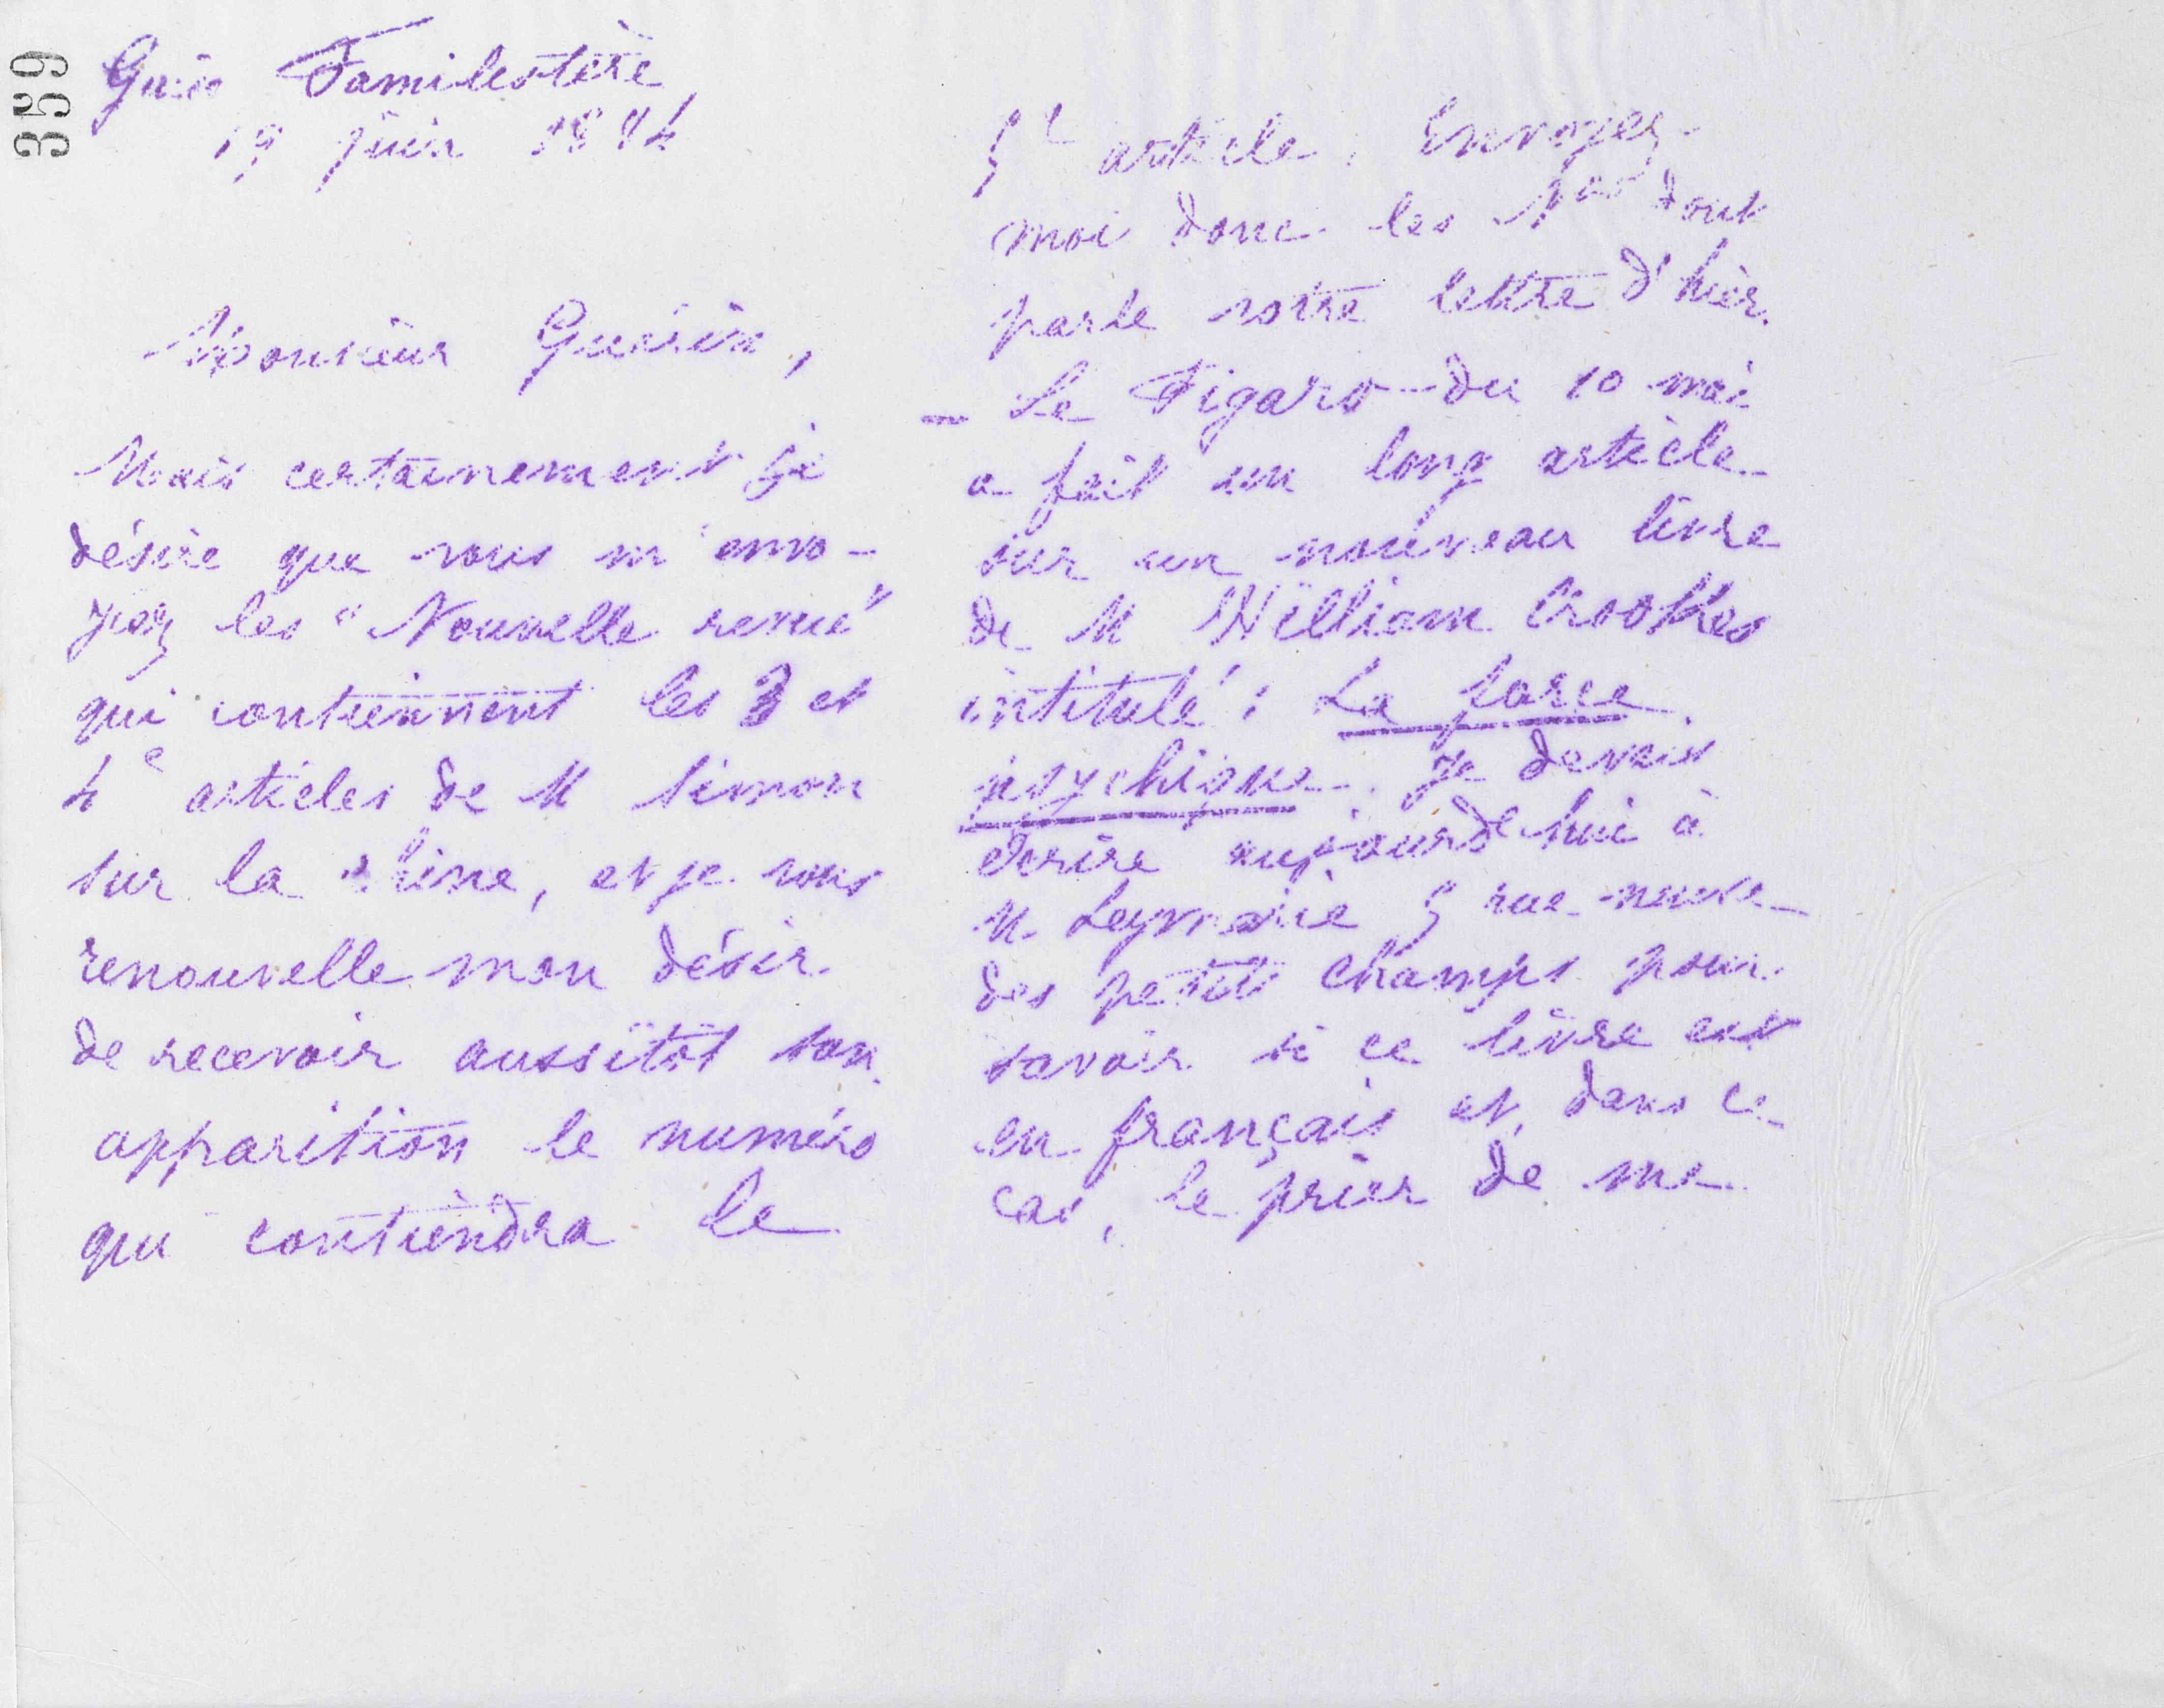 359
Guise Familistère
19 juin 1884
Monsieur Guérin,
Mais certainement je
désire que vous m'envo-
yiez les "Nouvelle revue"
qui contiennent les 3 et
4e articles de M Simon
sur la Chine, et je vous
renouvelle mon désir
de recevoir aussitôt son
apparition le numéro
qui contiendra le
5e article. Envoyez-
moi donc les Nos dont
parle votre lettre d'hier.
- Le Figaro du 10 mai
a fait un long article
sur un nouveau livre
de M William Crookes
intitulé : La force
psychique. Je devais
écrire aujourd'hui à
M. Leymarie 5 rue neuve
des petits champs pour
savoir si ce livre est
en français et, dans ce
cas, le prier de me